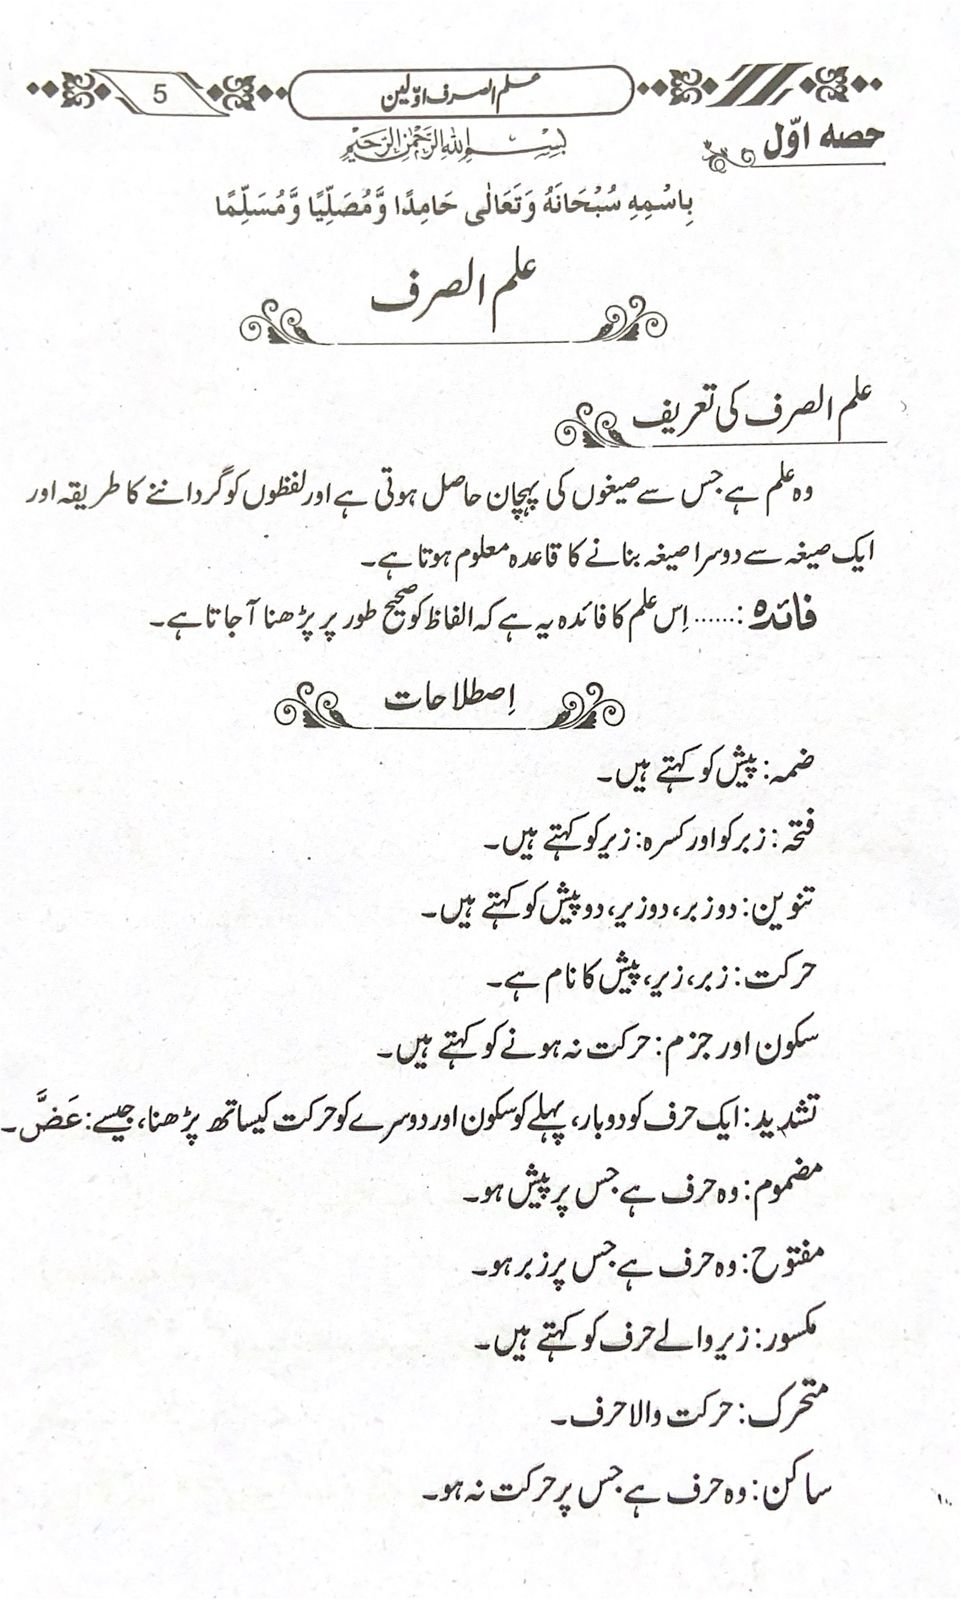 5
معلم الصرف اوّلین
حصہ اوّل
بِسْمِ اللهِ الرَّحْمٰنِ الرَّحِيْمِ
بِاسْمِهِ سُبْحَانَهُ وَتَعَالٰى حَامِدًا وَّمُصَلِّيًا وَّمُسَلِّمًا
علم الصرف
علم الصرف کی تعریف
وہ علم ہے جس سے صیغوں کی پہچان حاصل ہوتی ہے اور لفظوں کو گرداننے کا طریقہ اور
ایک صیغہ سے دوسرا صیغہ بنانے کا قاعدہ معلوم ہوتا ہے۔
فائدہ :...... اِس علم کا فائدہ یہ ہے کہ الفاظ کو صحیح طور پر پڑھنا آ جاتا ہے۔
اِصطلاحات
ضمہ: پیش کو کہتے ہیں۔
فتحہ: زبر کو اور کسرہ: زیر کو کہتے ہیں۔
تنوین: دو زبر، دو زیر، دو پیش کو کہتے ہیں۔
حرکت: زبر، زیر، پیش کا نام ہے۔
سکون اور جزم: حرکت نہ ہونے کو کہتے ہیں۔
تشدید: ایک حرف کو دوبار، پہلے کو سکون اور دوسرے کو حرکت کیساتھ پڑھنا، جیسے: عَضَّ۔
مضموم: وہ حرف ہے جس پر پیش ہو۔
مفتوح: وہ حرف ہے جس پر زبر ہو۔
مکسور: زیر والے حرف کو کہتے ہیں۔
متحرک: حرکت والا حرف۔
ساکن: وہ حرف ہے جس پر حرکت نہ ہو۔